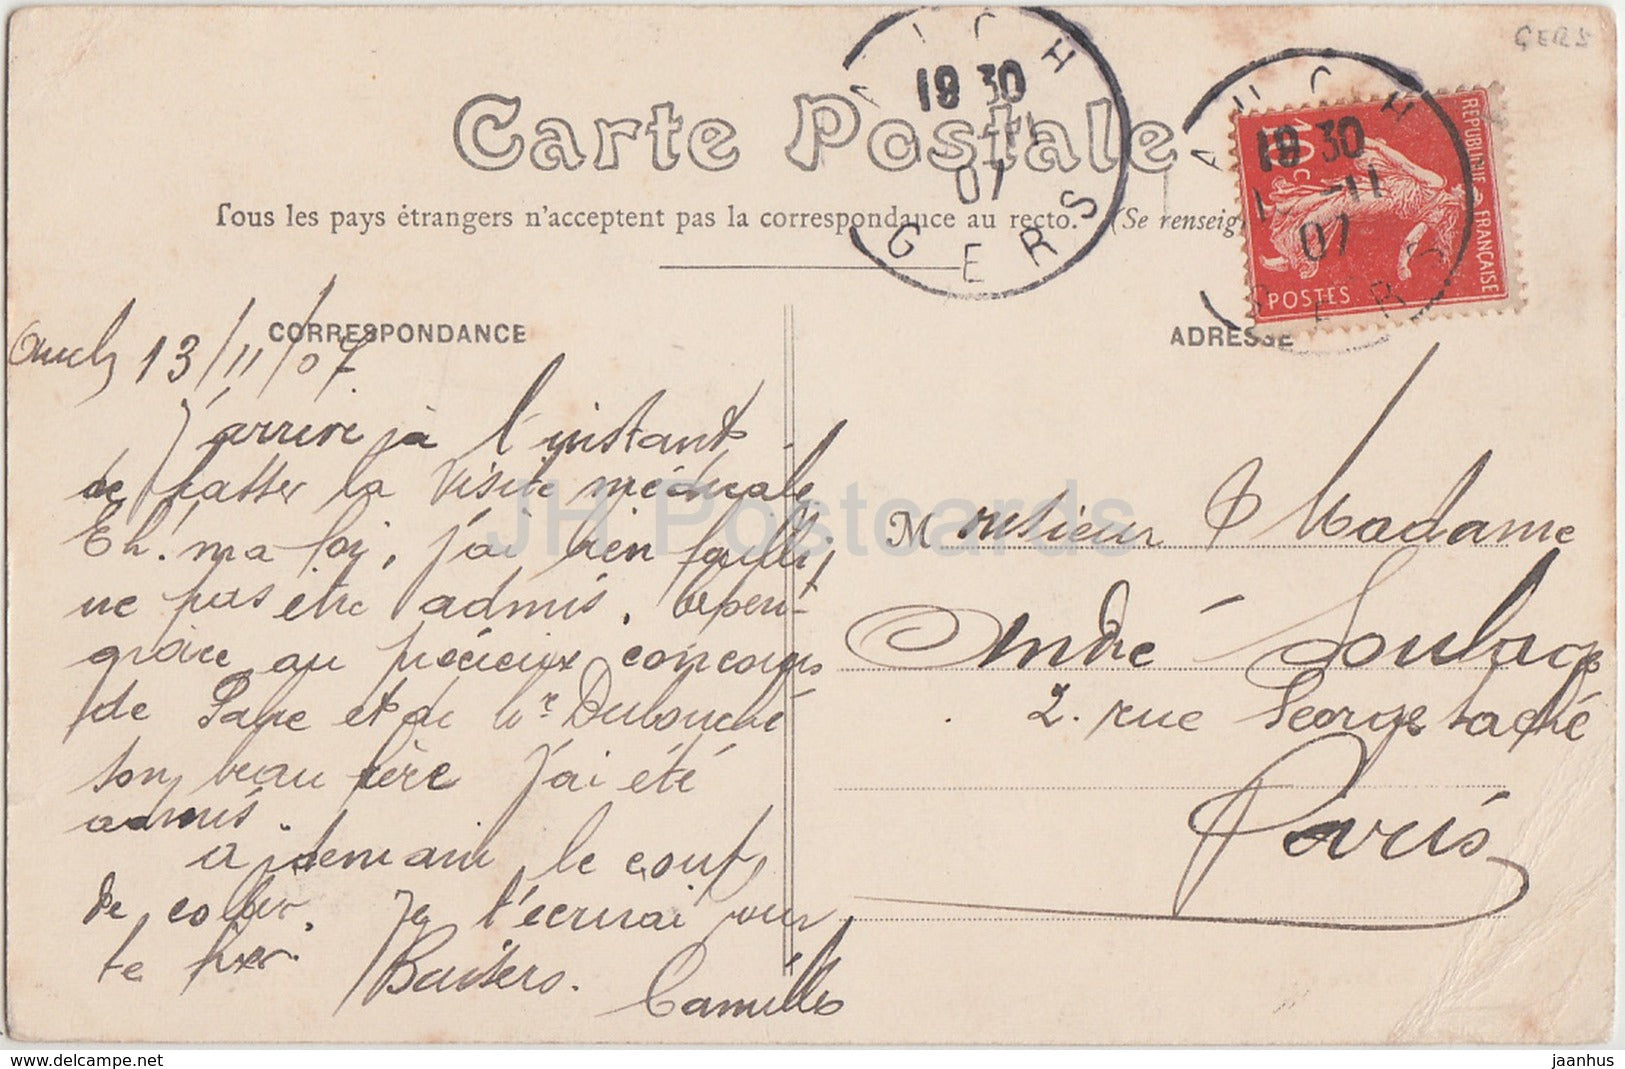 GERS
AUCH
18 30
13-11
07
GERS
AUCH
18 30
13-11
07
GERS
REPUBLIQUE FRANÇAISE
10 c
POSTES
Carte Postale
Tous les pays étrangers n'acceptent pas la correspondance au recto. (Se renseig
CORRESPONDANCE
ADRESSE
Auch 13/11/07
J'arrive à l'instant
de passer la visite médicale
Eh! ma foi, j'ai bien failli
ne pas être admis.
grâce au précieux concours
de Pape et de Mr Dubouché
son beau père j'ai été
admis.
à demain le coup
de collier. Je t'écrirai pour
te fixer. Baisers.
Camille
Monsieur & Madame
André Soulacq
2. rue Georges taché
Paris
JH Postcards
www.delcampe.net
jaanhus